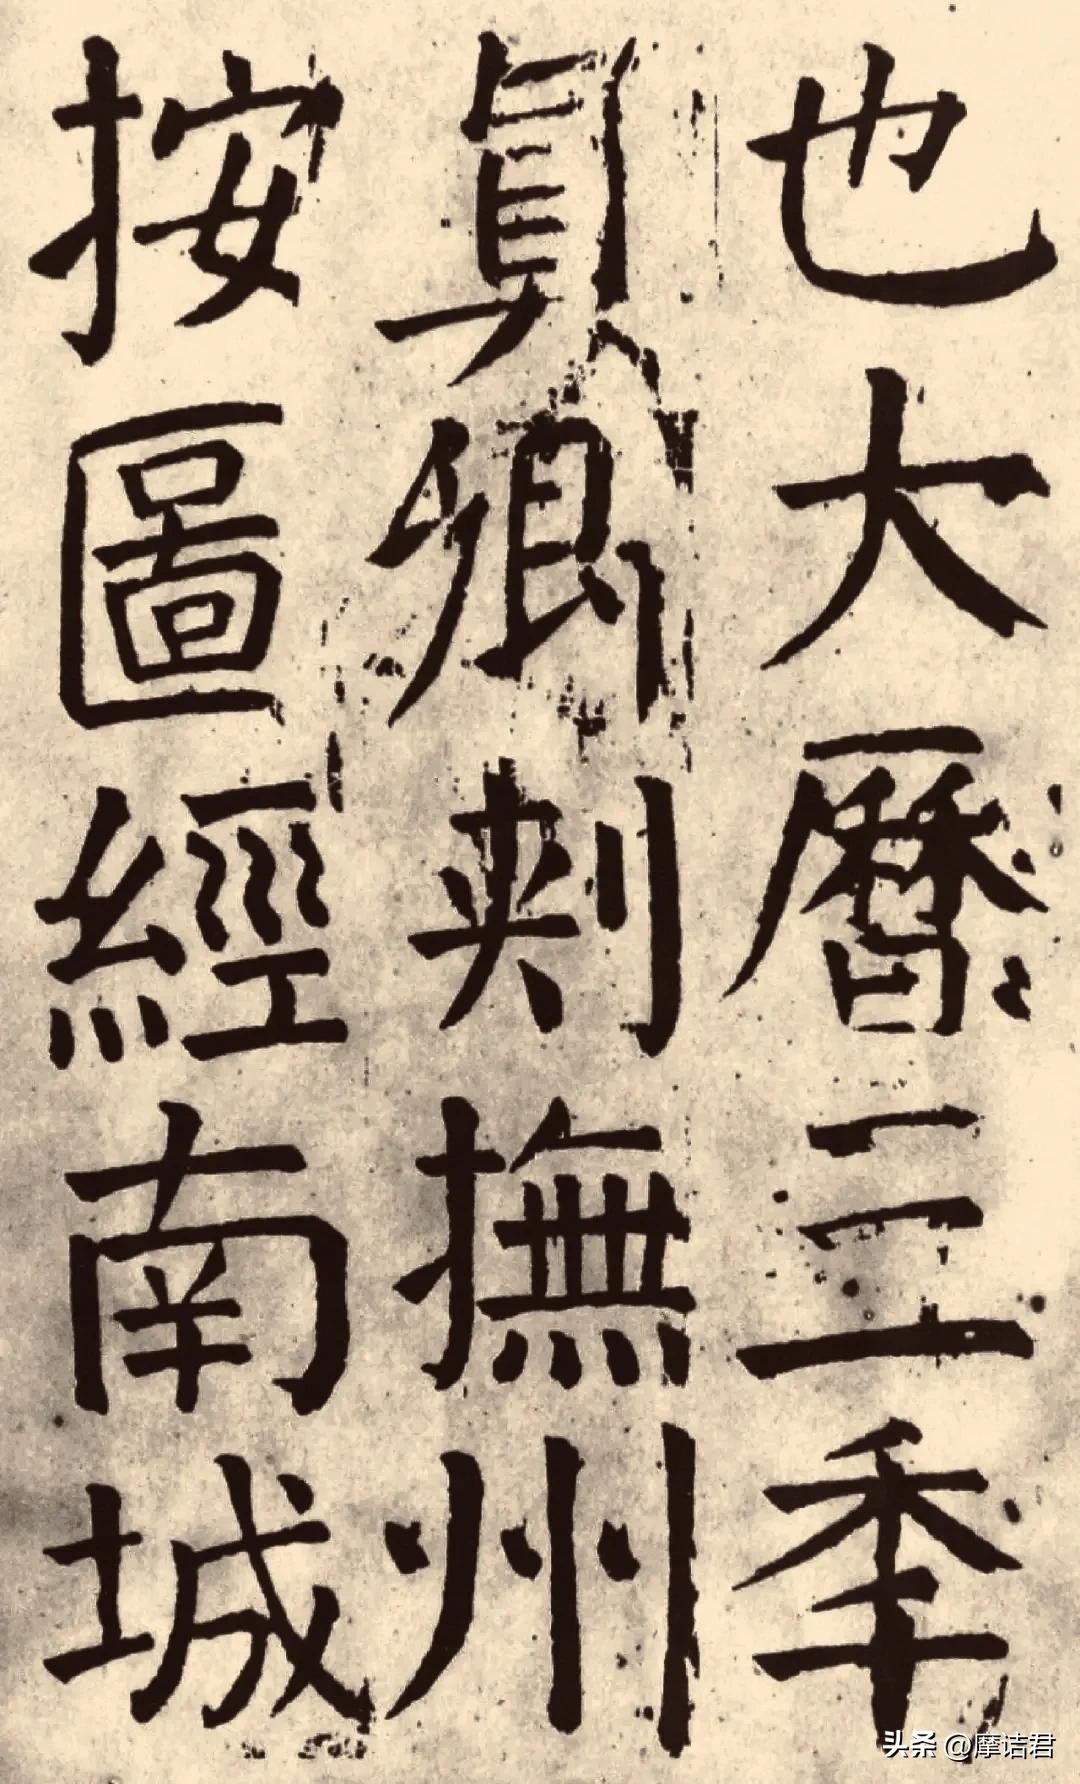 也大曆三秊
真卿刾撫州
按圖經南城
头条 @摩诘君